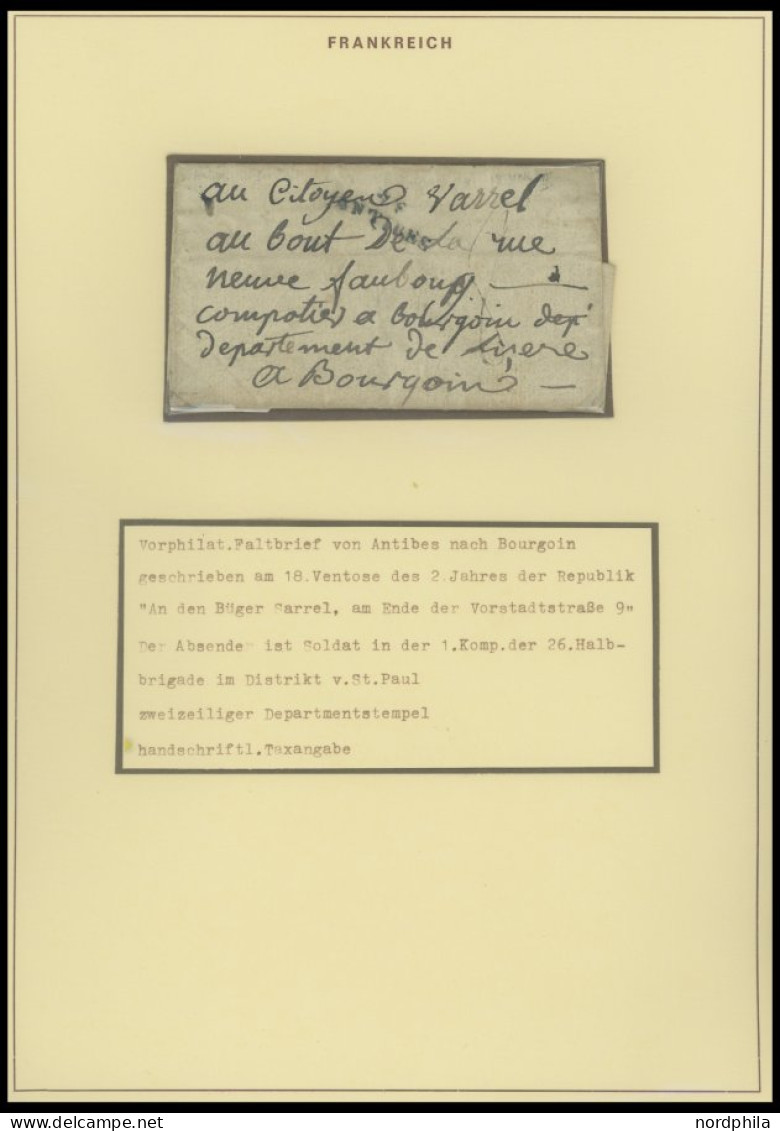 FRANKREICH
au Citoyen Varrel
ANTIBES
au bout De La rue
neuve faubourg
a bourgoin
departement de
a Bourgoin
Vorphilat.Faltbrief von Antibes nach Bourgoin
geschrieben am 18.Ventose des 2.Jahres der Republik
"An den Büger Sarrel, am Ende der Vorstadtstraße 9"
Der Absender ist Soldat in der 1.Komp.der 26.Halb-
brigade im Distrikt v.St.Paul
zweizeiliger Departmentstempel
handschriftl.Taxangabe
nordphila